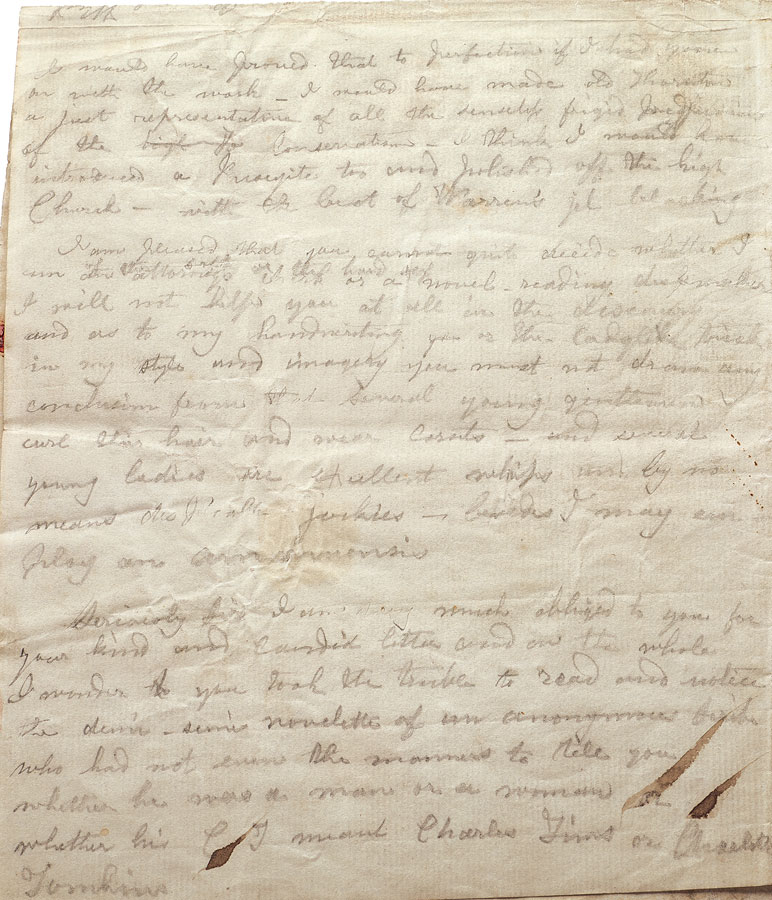 I would have proved that to perfection if I had gone
on with the work – I would have made old Thornton
a just representative of all the senseless frigid prejudices
of the high To Conservatism – I think I would have
introduced a Puseyite too and polished off the high
Church – with the best of Warren's jet blacking
I am pleased that you cannot quite decide whether I
am an attorney's clerk or a novel-reading dress-maker
I will not help you at all in the discovery
and as to my handwriting or the ladylike
in my style and imagery you must not draw any
conclusion from that Several young gentlemen
curl their hair and wear corsets – and several
young ladies are excellent whips and by no
means despicable jockies – besides I may
employ an amanuensis
Seriously Sir I am very much obliged to you for
your kind and candid letter and on the whole
I wonder you took the trouble to read and notice
the demi-semi novelette of an anonymous
who had not even the manners to tell you
whether he was a man or a woman or
whether his C T meant Charles Tims or Charlotte
Tomkins